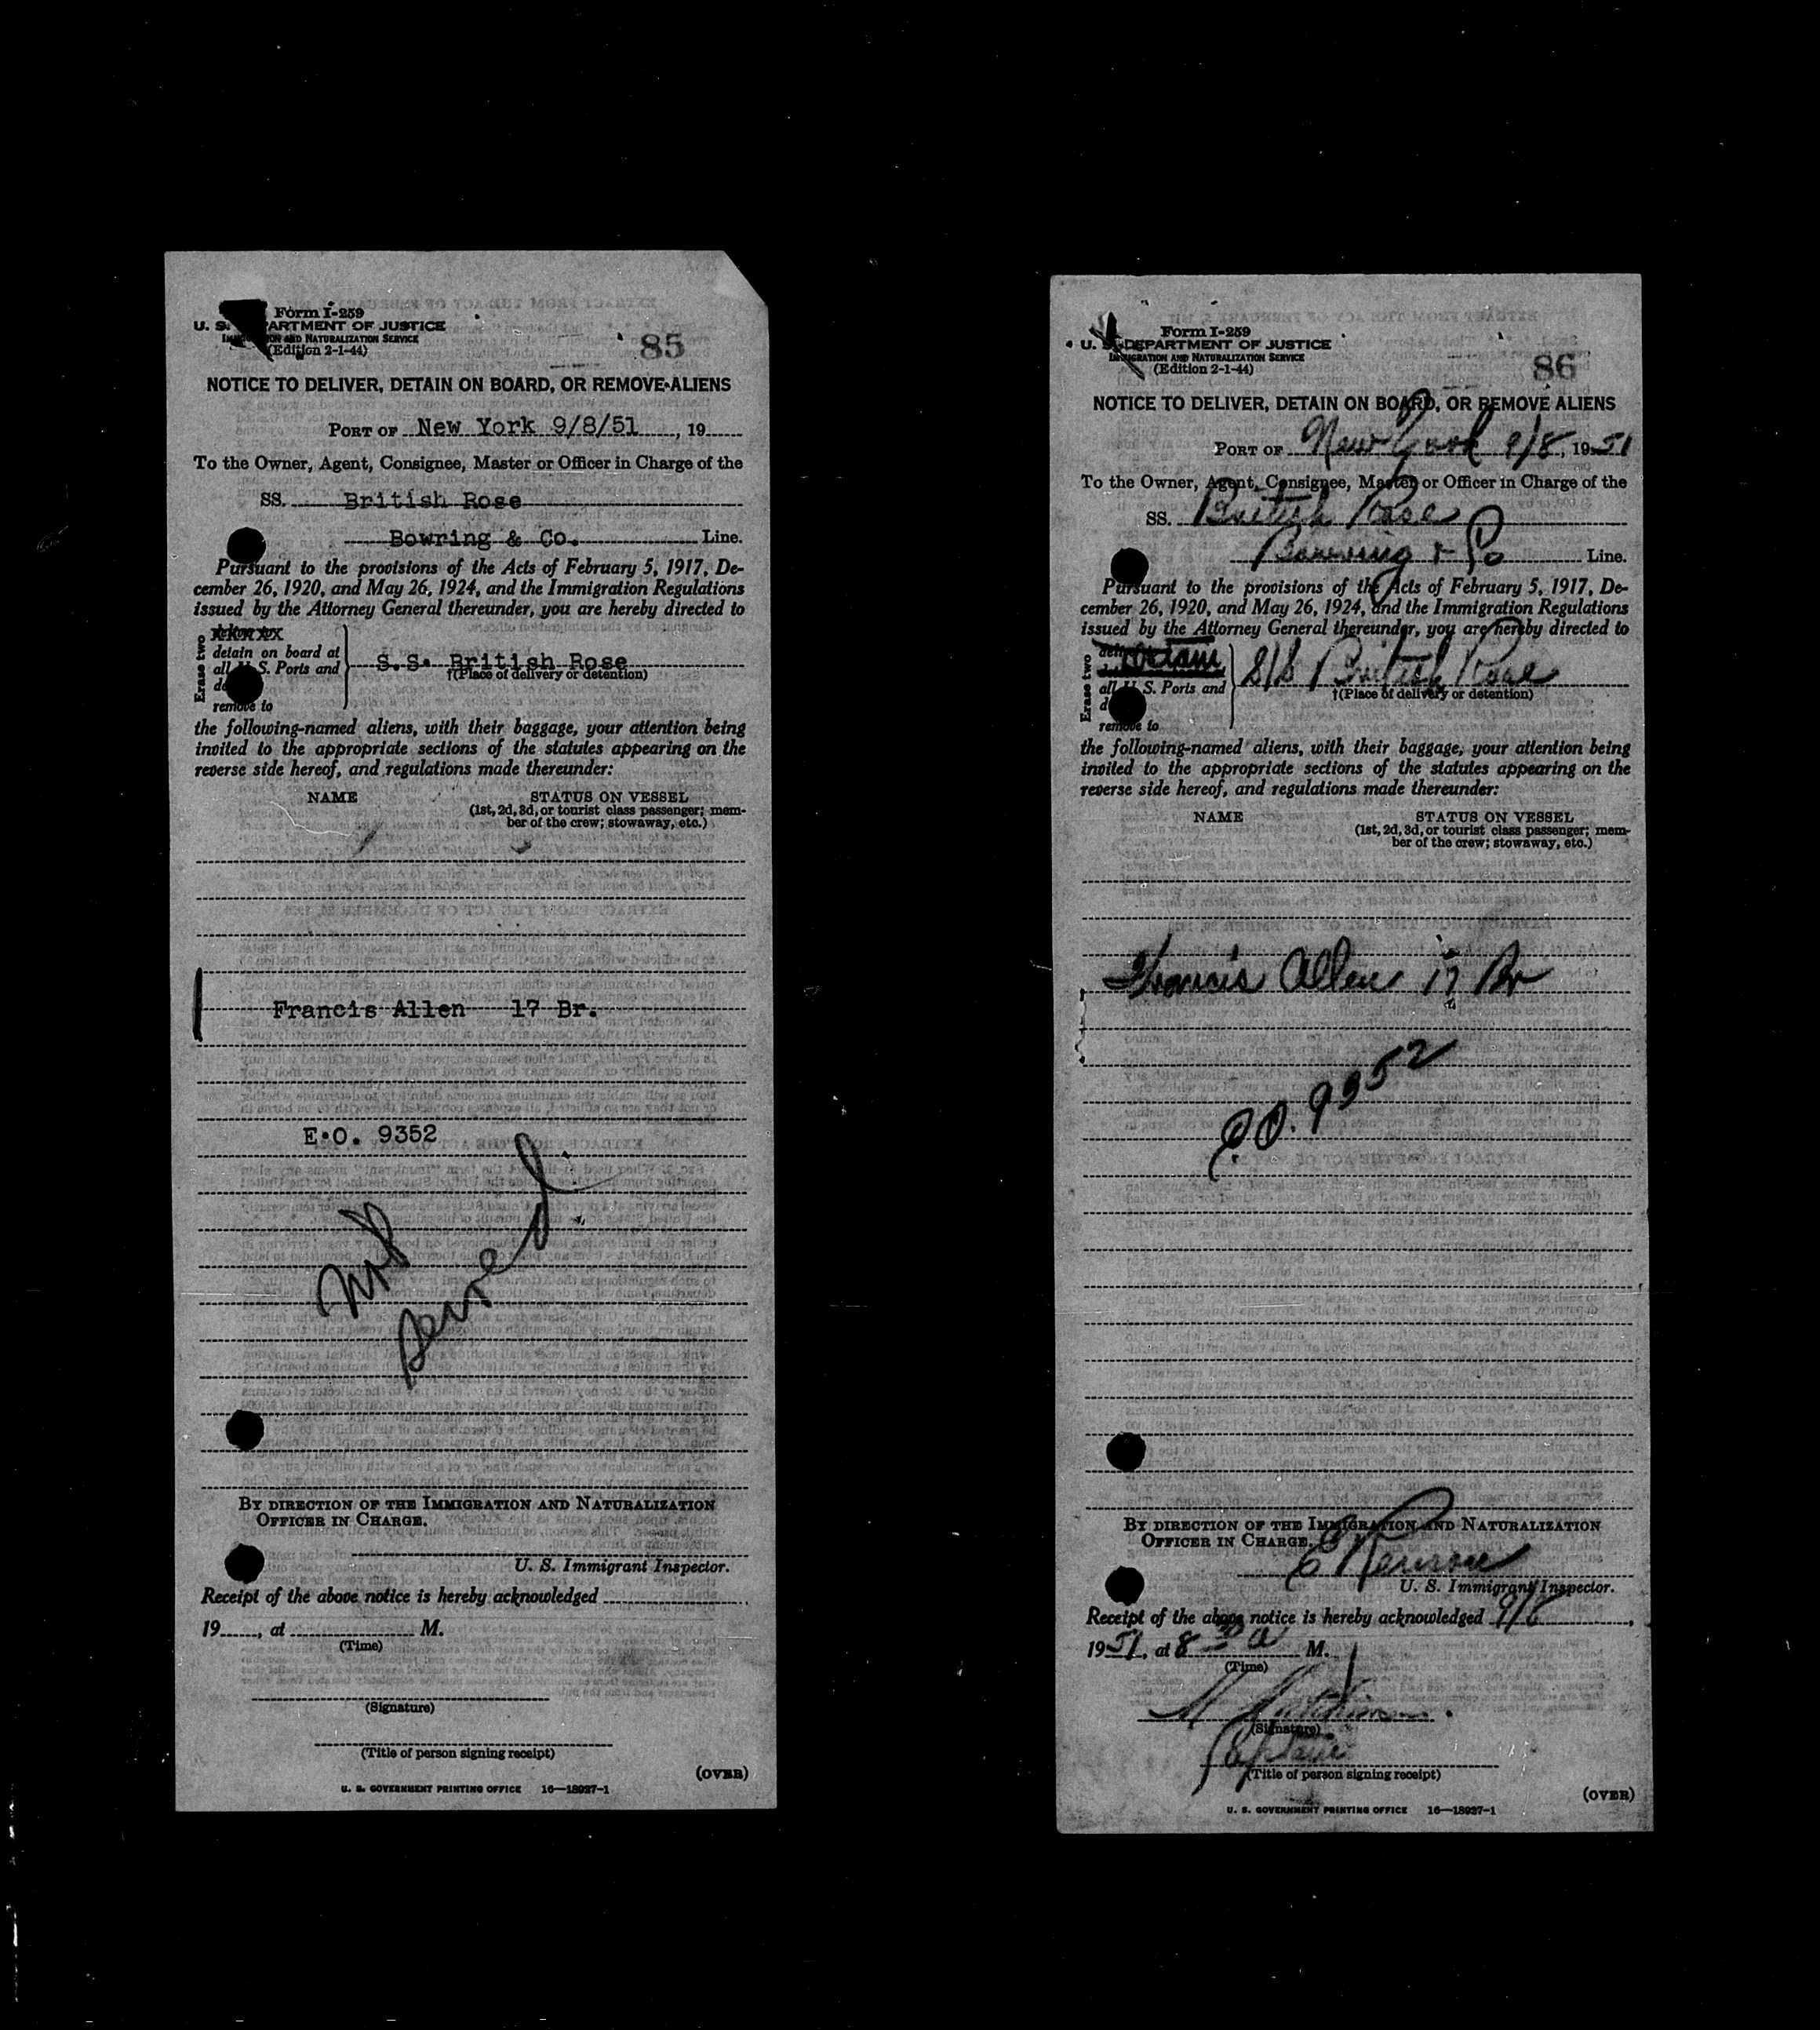 Form I-259
U. S. DEPARTMENT OF JUSTICE
IMMIGRATION AND NATURALIZATION SERVICE
(Edition 2-1-44)
85
NOTICE TO DELIVER, DETAIN ON BOARD, OR REMOVE ALIENS
PORT OF New York 9/8/51, 19
To the Owner, Agent, Consignee, Master or Officer in Charge of the
SS. British Rose
Bowring & Co. Line.
Pursuant to the provisions of the Acts of February 5, 1917, De-
cember 26, 1920, and May 26, 1924, and the Immigration Regulations
issued by the Attorney General thereunder, you are hereby directed to
Erase two
detain on board at
all U. S. Ports and
S.S. British Rose
†(Place of delivery or detention)
remove to
the following-named aliens, with their baggage, your attention being
invited to the appropriate sections of the statutes appearing on the
reverse side hereof, and regulations made thereunder:
NAME STATUS ON VESSEL
(1st, 2d, 3d, or tourist class passenger; mem-
ber of the crew; stowaway, etc.)
Francis Allen 17 Br.
E.O. 9352
Served
BY DIRECTION OF THE IMMIGRATION AND NATURALIZATION
OFFICER IN CHARGE.
U. S. Immigrant Inspector.
Receipt of the above notice is hereby acknowledged
19, at M.
(Time)
(Signature)
(Title of person signing receipt)
(OVER)
U. S. GOVERNMENT PRINTING OFFICE 16—18927-1
Form I-259
U. S. DEPARTMENT OF JUSTICE
IMMIGRATION AND NATURALIZATION SERVICE
(Edition 2-1-44)
86
NOTICE TO DELIVER, DETAIN ON BOARD, OR REMOVE ALIENS
PORT OF New York 9/8, 1951
To the Owner, Agent, Consignee, Master or Officer in Charge of the
SS. British Rose
Bowring & Co Line.
Pursuant to the provisions of the Acts of February 5, 1917, De-
cember 26, 1920, and May 26, 1924, and the Immigration Regulations
issued by the Attorney General thereunder, you are hereby directed to
Erase two
Detain
all U. S. Ports and
S/S British Rose
†(Place of delivery or detention)
remove to
the following-named aliens, with their baggage, your attention being
invited to the appropriate sections of the statutes appearing on the
reverse side hereof, and regulations made thereunder:
NAME STATUS ON VESSEL
(1st, 2d, 3d, or tourist class passenger; mem-
ber of the crew; stowaway, etc.)
Francis Allen 17 Br
E.O. 9352
BY DIRECTION OF THE IMMIGRATION AND NATURALIZATION
OFFICER IN CHARGE.
U. S. Immigrant Inspector.
Receipt of the above notice is hereby acknowledged 9/8,
1951, at 8 30 a M.
(Time)
(Signature)
Captain
(Title of person signing receipt)
(OVER)
U. S. GOVERNMENT PRINTING OFFICE 16—18927-1